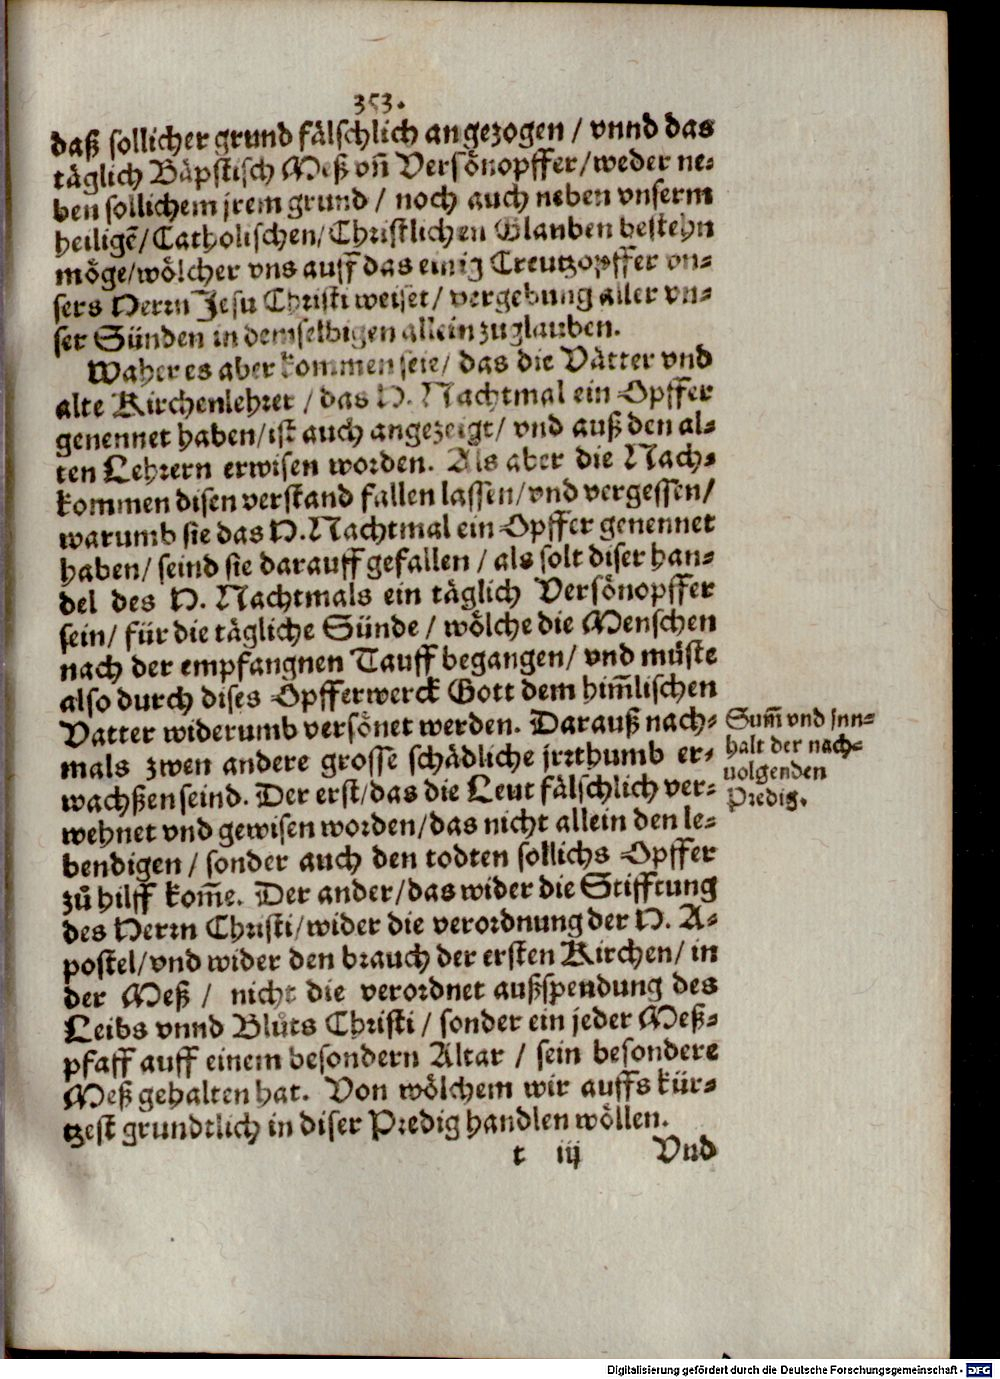 353.
daß sollicher grund fälschlich angezogen / vnnd das
täglich Bäpstisch Meß vñ Versönopffer / weder ne-
ben sollichem jrem grund / noch auch neben vnserm
heiligẽ / Catholischen / Christlichen Glauben bestehn
möge / wölcher vns auff das einig Creutzopffer vn-
sers Herrn Jesu Christi weiset / vergebung aller vn-
ser Sünden in demselbigen allein zuglauben.
Waher es aber kommen seie / das die Vätter vnd
alte Kirchenlehrer / das H. Nachtmal ein Opffer
genennet haben / ist auch angezeigt / vnd auß den al-
ten Lehrern erwisen worden. Als aber die Nach-
kommen disen verstand fallen lassen / vnd vergessen /
warumb sie das H. Nachtmal ein Opffer genennet
haben / seind sie darauff gefallen / als solt diser han-
del des H. Nachtmals ein täglich Versönopffer
sein / für die tägliche Sünde / wölche die Menschen
nach der empfangnen Tauff begangen / vnd müste
also durch dises Opfferwerck Gott dem him̃lischen
Vatter widerumb versönet werden. Darauß nach-
mals zwen andere grosse schädliche jrrthumb er-
wachßen seind. Der erst / das die Leut fälschlich ver-
wehnet vnd gewisen worden / das nicht allein den le-
bendigen / sonder auch den todten sollichs Opffer
zů hilff kom̃e. Der ander / das wider die Stifftung
des Herrn Christi / wider die verordnung der H. A-
postel / vnd wider den brauch der ersten Kirchen / in
der Meß / nicht die verordnet außspendung des
Leibs vnnd Blůts Christi / sonder ein jeder Meß-
pfaff auff einem besondern Altar / sein besondere
Meß gehalten hat. Von wölchem wir auffs kür-
tzest grundtlich in diser Predig handlen wöllen.
t iij Vnd
Sum̃ vnd inn-
halt der nach-
uolgenden
Predig.
Digitalisierung gefördert durch die Deutsche Forschungsgemeinschaft - DFG